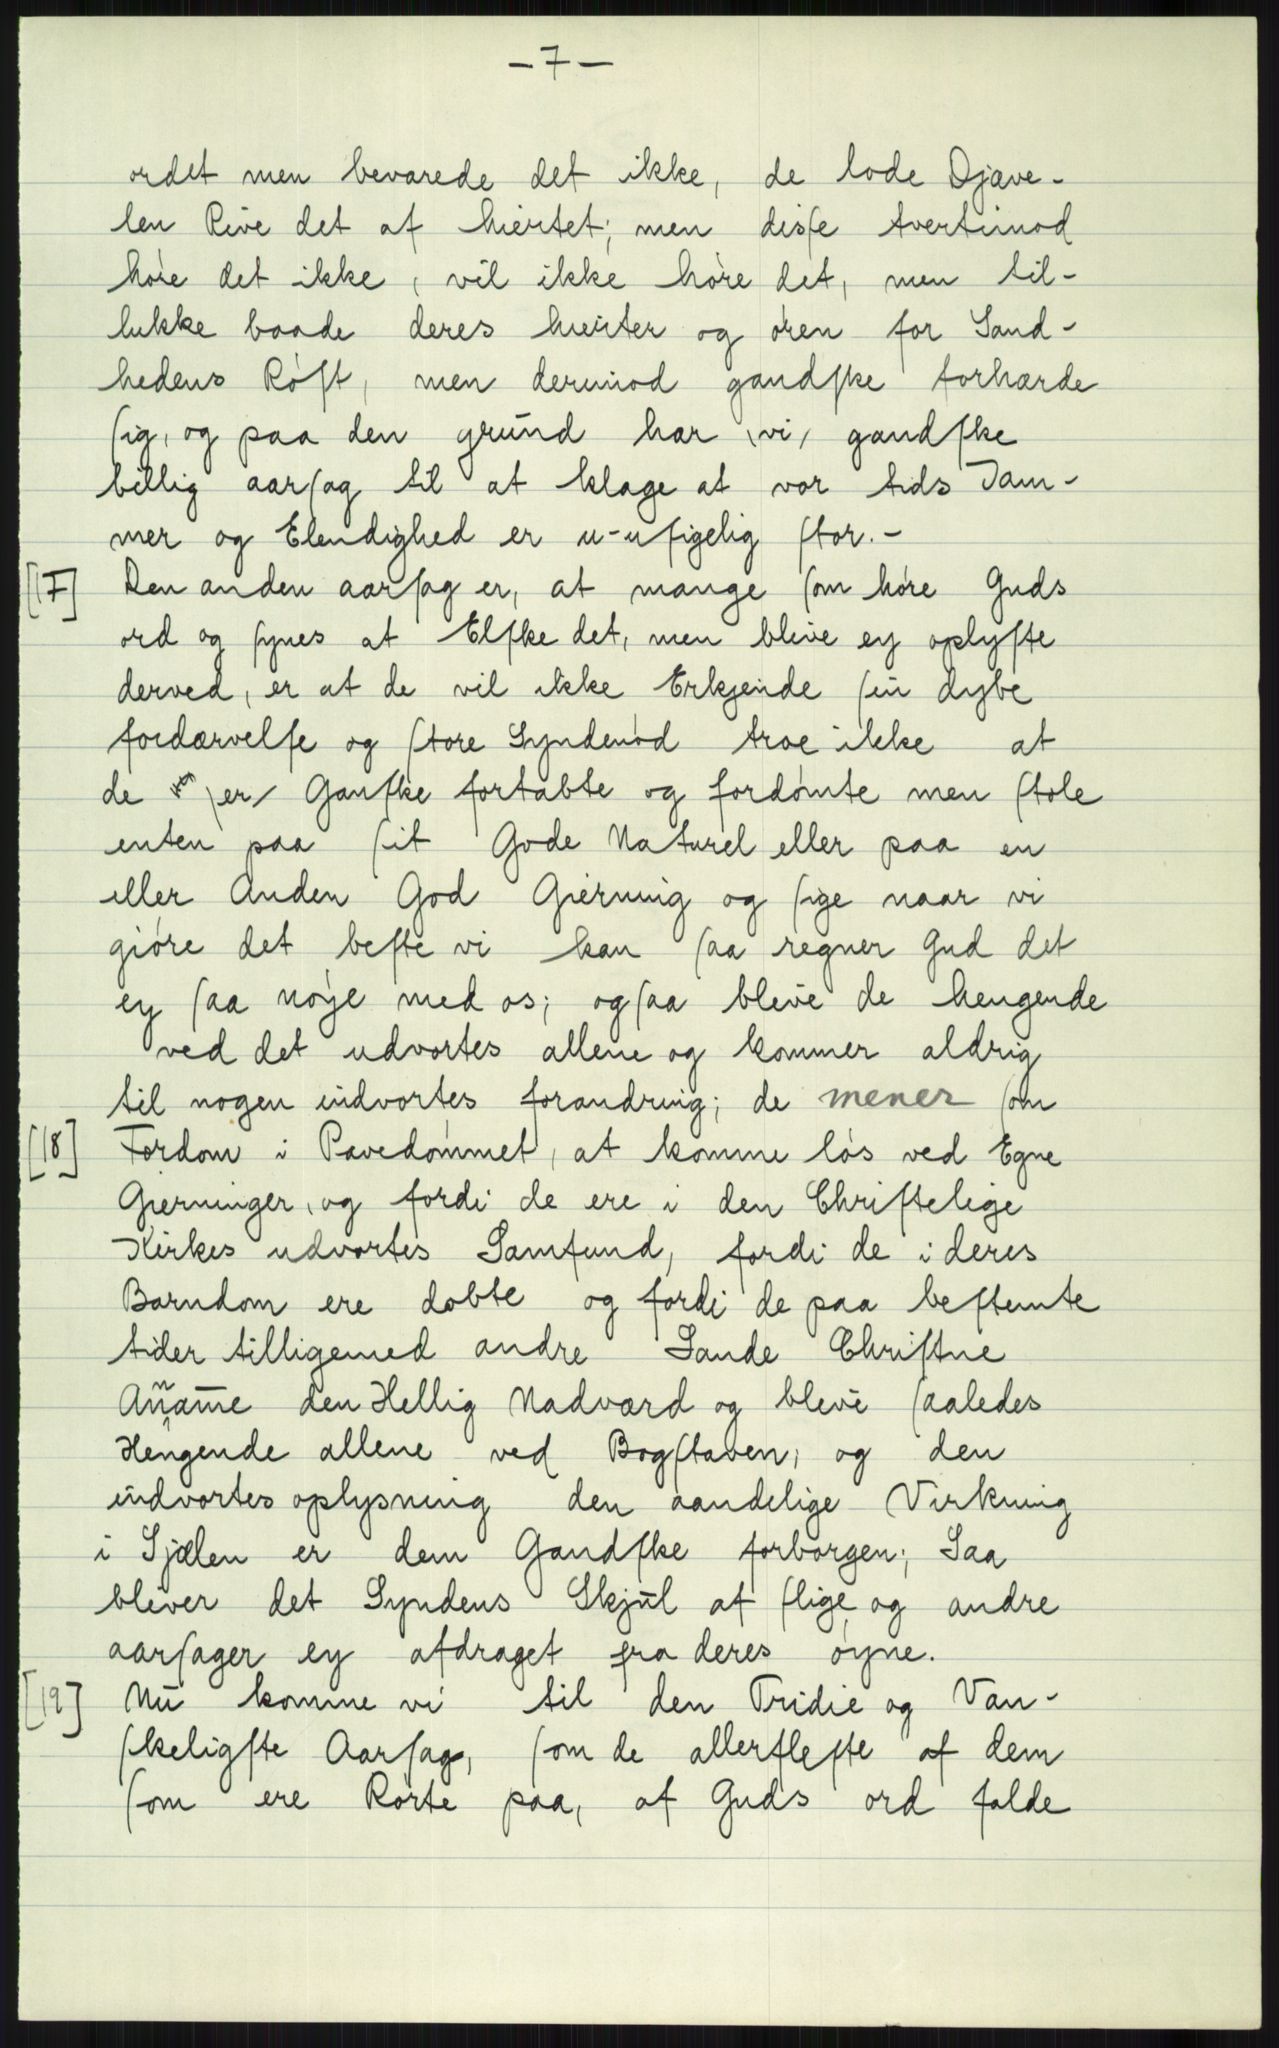 -7-
ordet men bevarede det ikke, de lode Djæve-
len Rive det af hiertet; men disſe tvertimod
höre det ikke, vil ikke höre det, men til-
lukke baade deres hierter og ören for Sand-
hedens Röſt, men derimod gandſke forhærde
ſig, og paa den grūnd har \vi/ gandſke
billig aarſag til at klage at vor tids Jam-
mer og Elendighed er u-uſigelig ſtor.-
[17] Den anden aarſag er, at mange ſom höre Guds
ord og ſynes at Elſke det, men blive ey oplyſte
derved, er at de vil ikke Erkjende ſin dybe
fordærvelſe og ſtore Syndenöd troe ikke at
de \er/ Ganſke fortabte og fordömte men ſtole
enten paa ſit Gode Naturel eller paa en
eller Anden God Gierning og ſige naar vi
giöre det beſte vi kan ſaa regner Gud det
ey ſaa nöje med os; ogſaa blive de hengende
ved det udvortes allene og kommer aldrig
til nogen indvortes forandring; de mener ſom
[18] Fordom i Pavedömmet, at komme lös ved Egne
Gierninger, og fordi de ere i den Chriſtelige
Kirkes udvortes Samfund, fordi de i deres
Barndom ere döbte og fordi de paa beſtemte
tider tilligemed andre Sande Chriſtne
An̄am̄e den Hellig Nadværd og blive ſaaledes
Hengende allene ved Bogſtaven, og den
indvortes oplysning den aandelige Virkning
i Sjælen er dem Gandſke forborgen; Saa
bliver det Syndens Skjūl af ſlige og andre
aarſager ey afdraget fra deres öyne.
[19] Nū komme vi til den Tridie og Van-
ſkeligſte Aarſag, ſom de allerfleſte af dem
ſom ere Rörte paa, af Guds ord falde